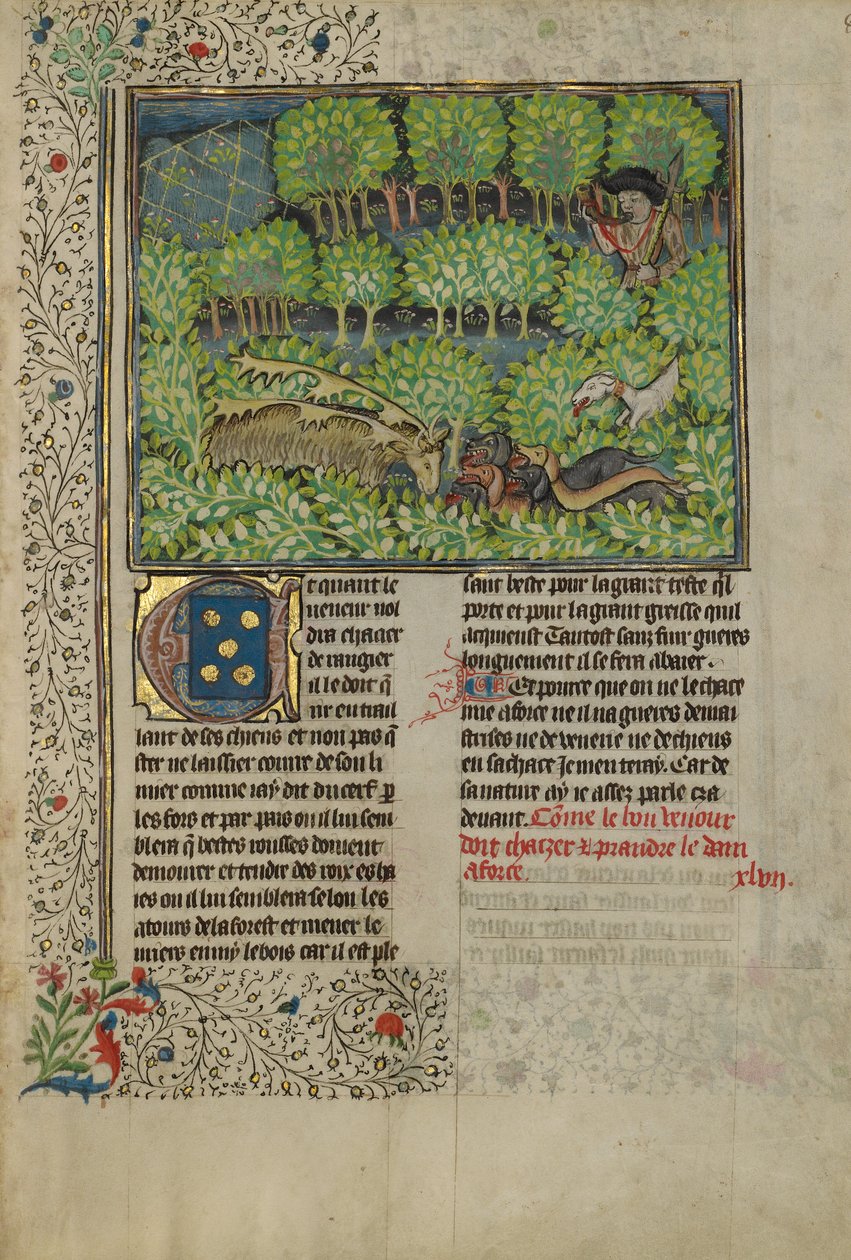 Et quant le
veneur vol
dra chacer
le rangier
il le doit q̄
rir en trail
lant de ses chiens et non pas q̄
ster ne laissier courre de son li
mier comme iay dit du cerf p
les fors et par pais ou il lui sem
blera q̄ bestes rousses doivent
demourer et tendre des roix et ha
ies ou il lui semblera selon les
atours de la forest et mener le
miers en my le bois car il est ple
sant beste pour la grant teste q̄l
porte et pour la grant gresse quil
acquiest Tantost sanz fuir gueres
longuement il se fera abaier.
Et pource que on ne le chace
mie a force ne il na gueres demai
strises ne de venerie ne de chiens
en sa chace Je men teray. Car de
sa nature ay ie assez parle cza
devant. Cōme le bon venour
doit chaczer & prandre le dain
a force
xlvii.